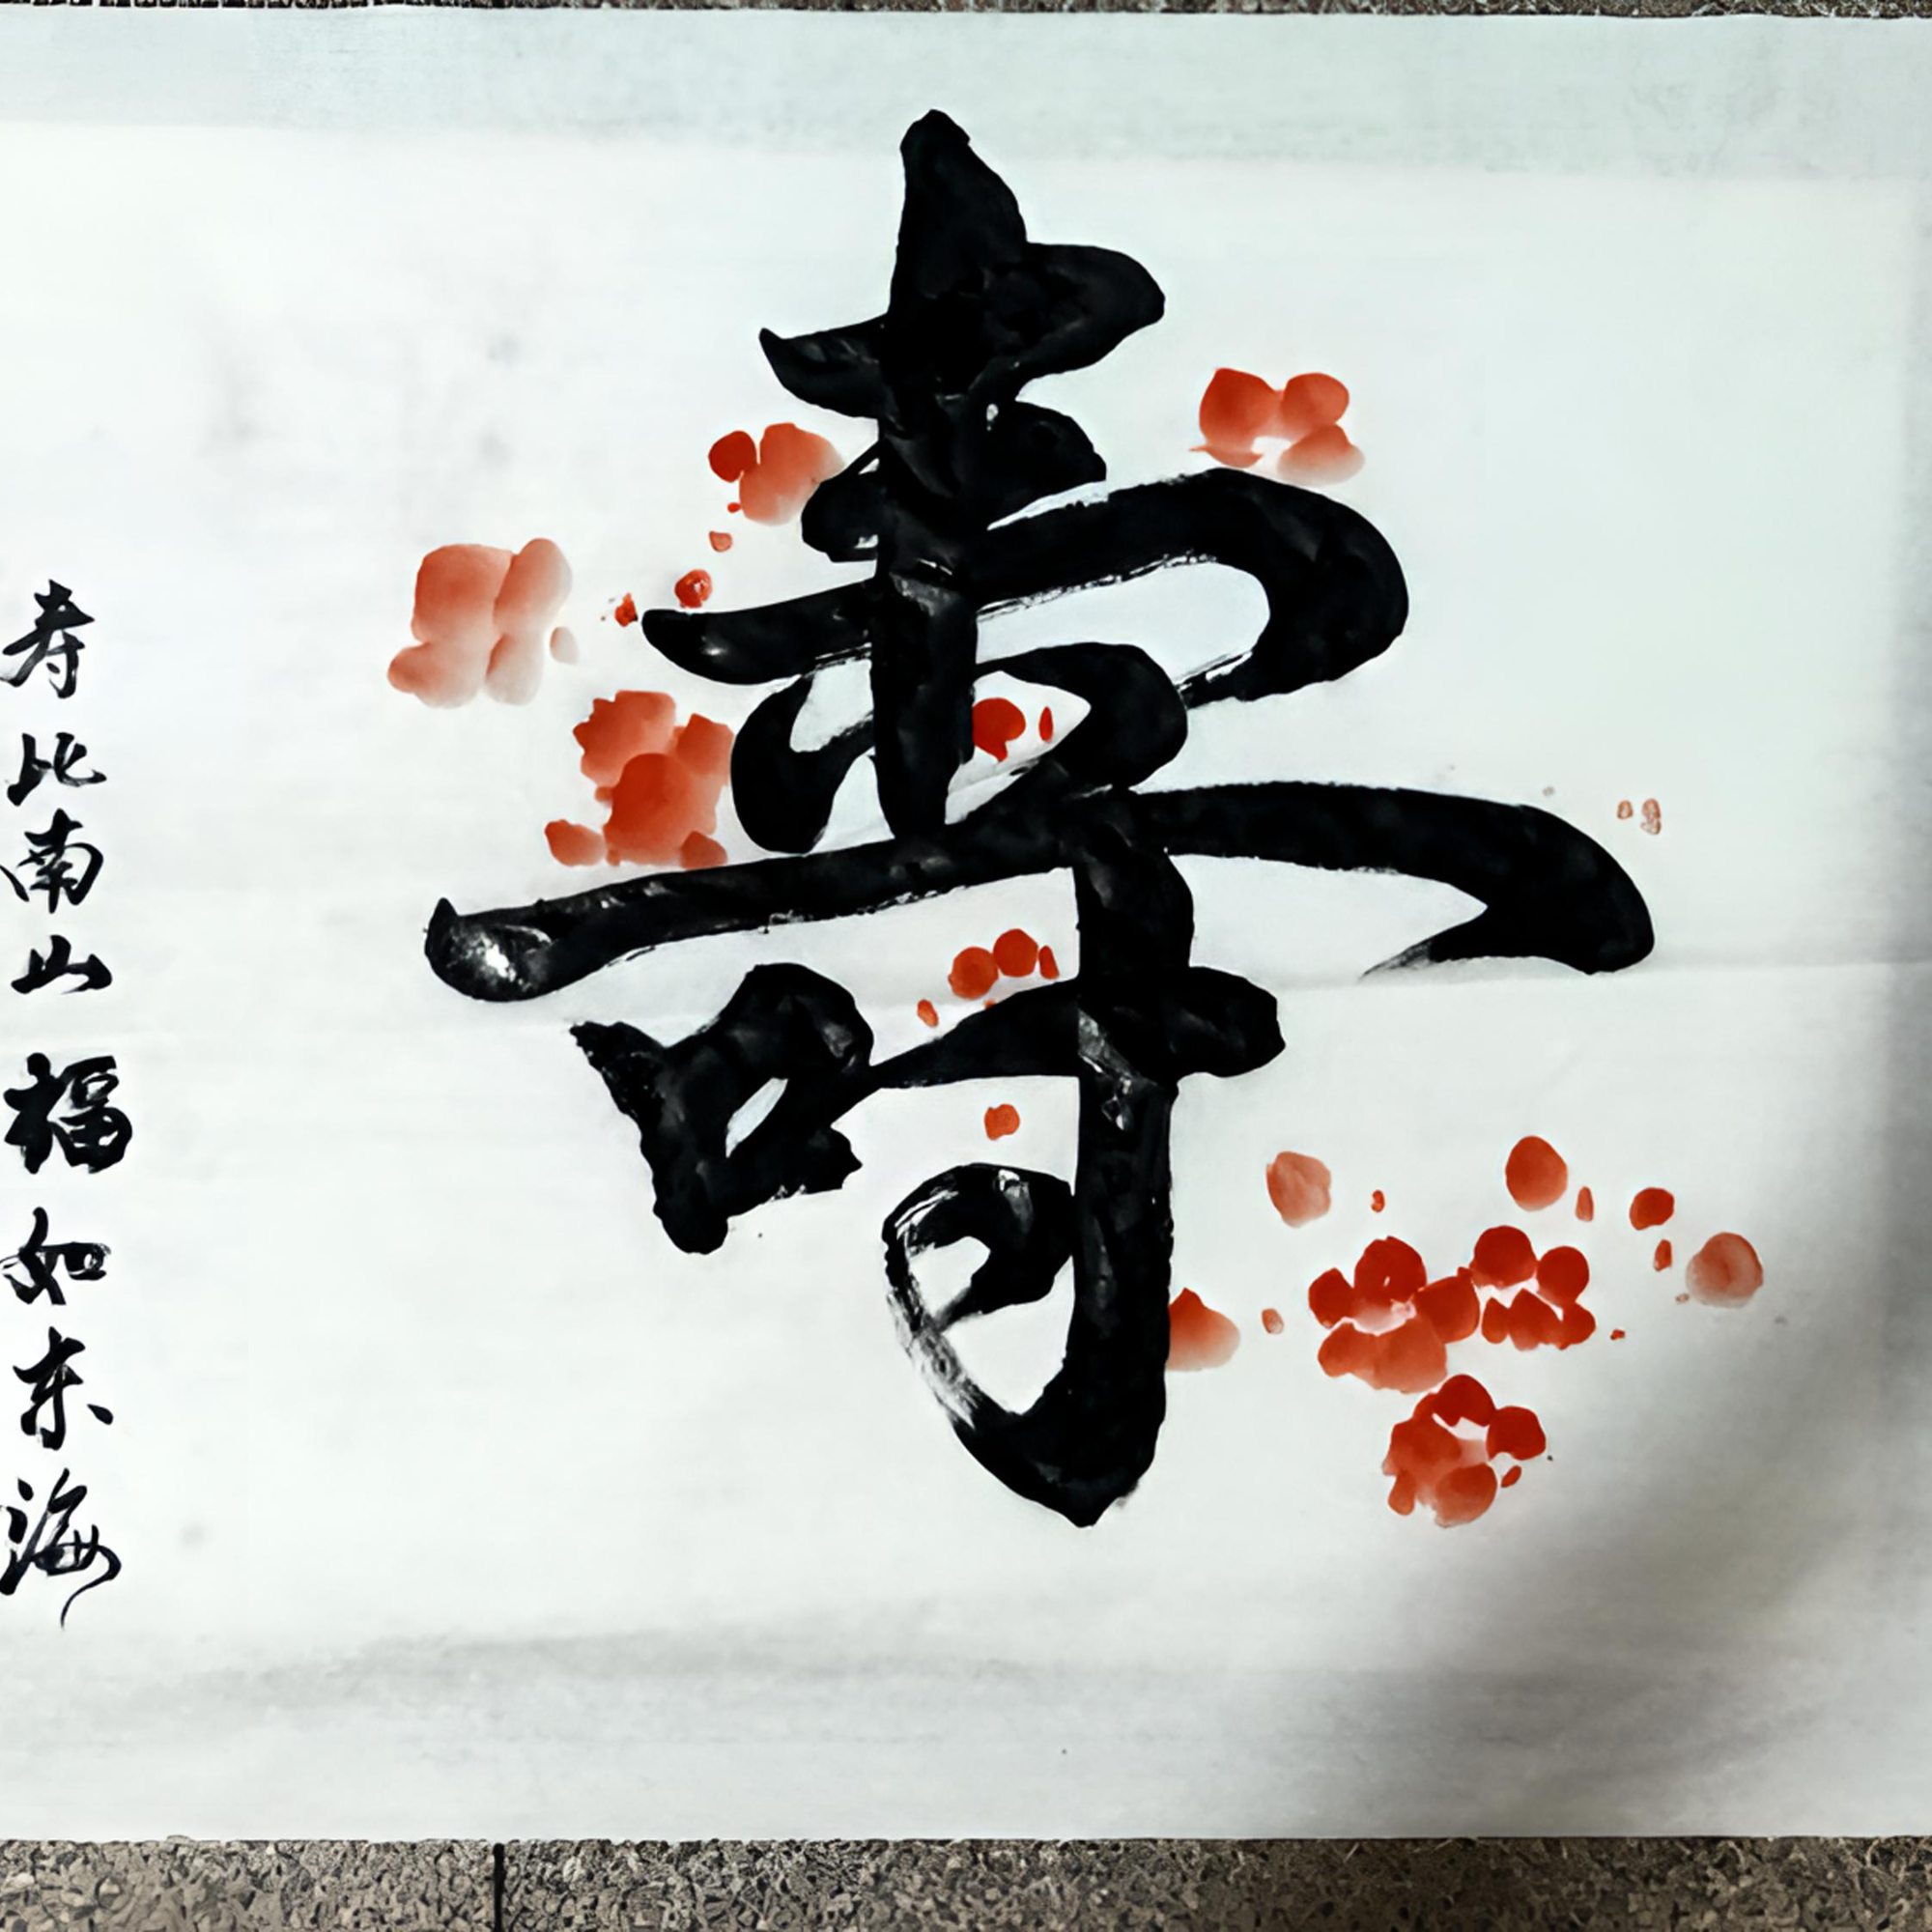 壽
寿比南山福如东海